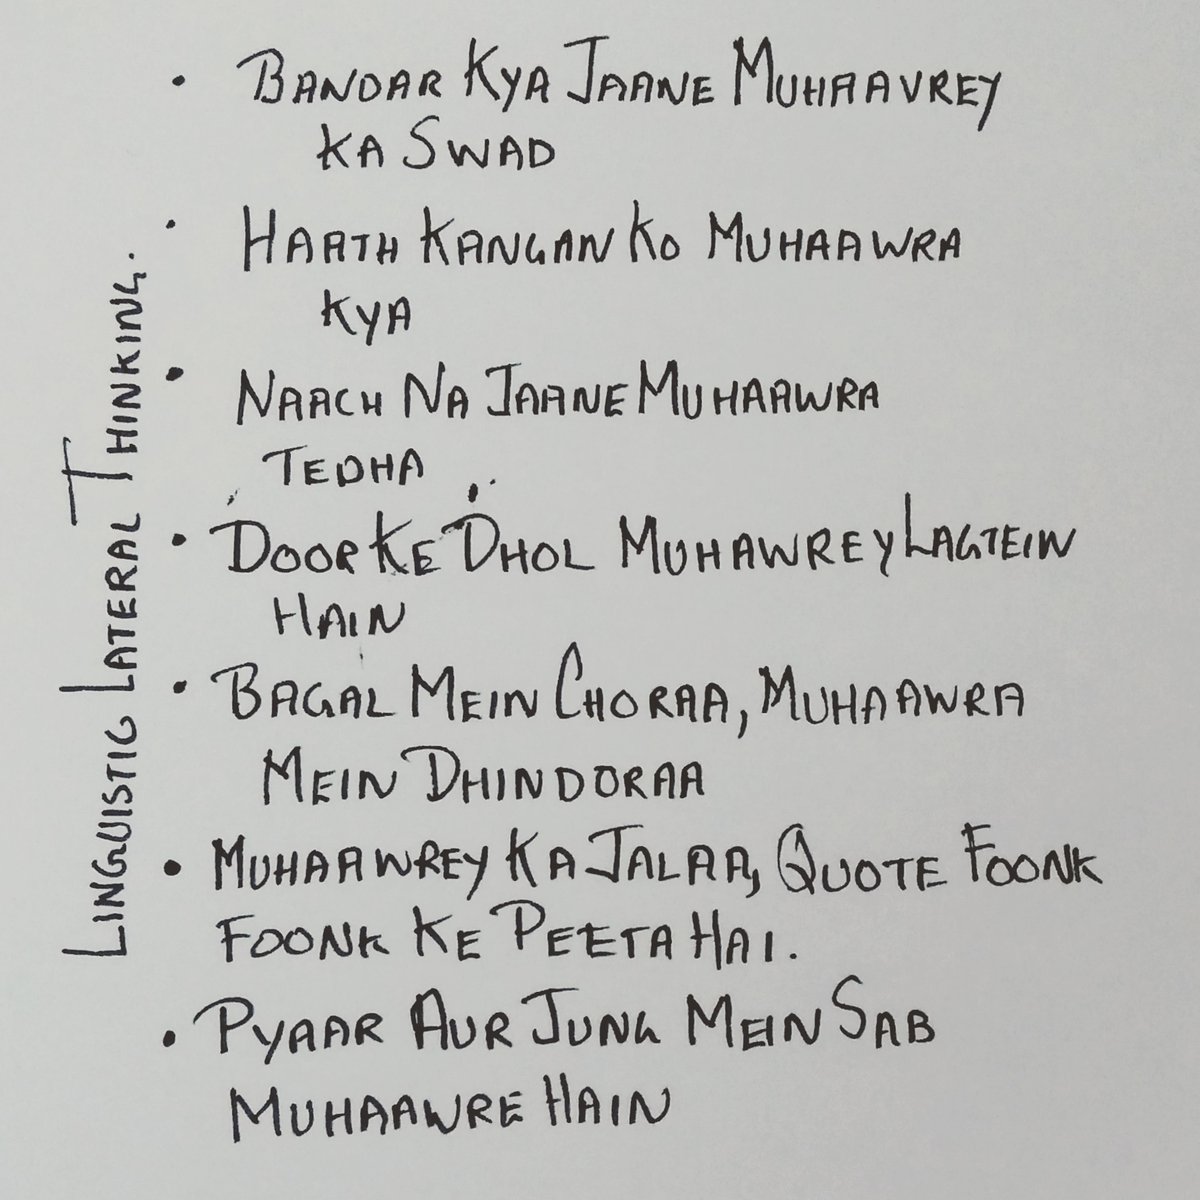 LINGUISTIC LATERAL THINKING.
• BANDAR KYA JAANE MUHAAVREY
KA SWAD
• HAATH KANGAN KO MUHAAWRA
KYA
• NAACH NA JAANE MUHAAWRA
TEDHA
• DOOR KE DHOL MUHAWREY LAGTEIN
HAIN
• BAGAL MEIN CHORAA, MUHAAWRA
MEIN DHINDORAA
• MUHAAWREY KA JALAA, QUOTE FOONK
FOONK KE PEETA HAI.
• PYAAR AUR JUNG MEIN SAB
MUHAAWRE HAIN